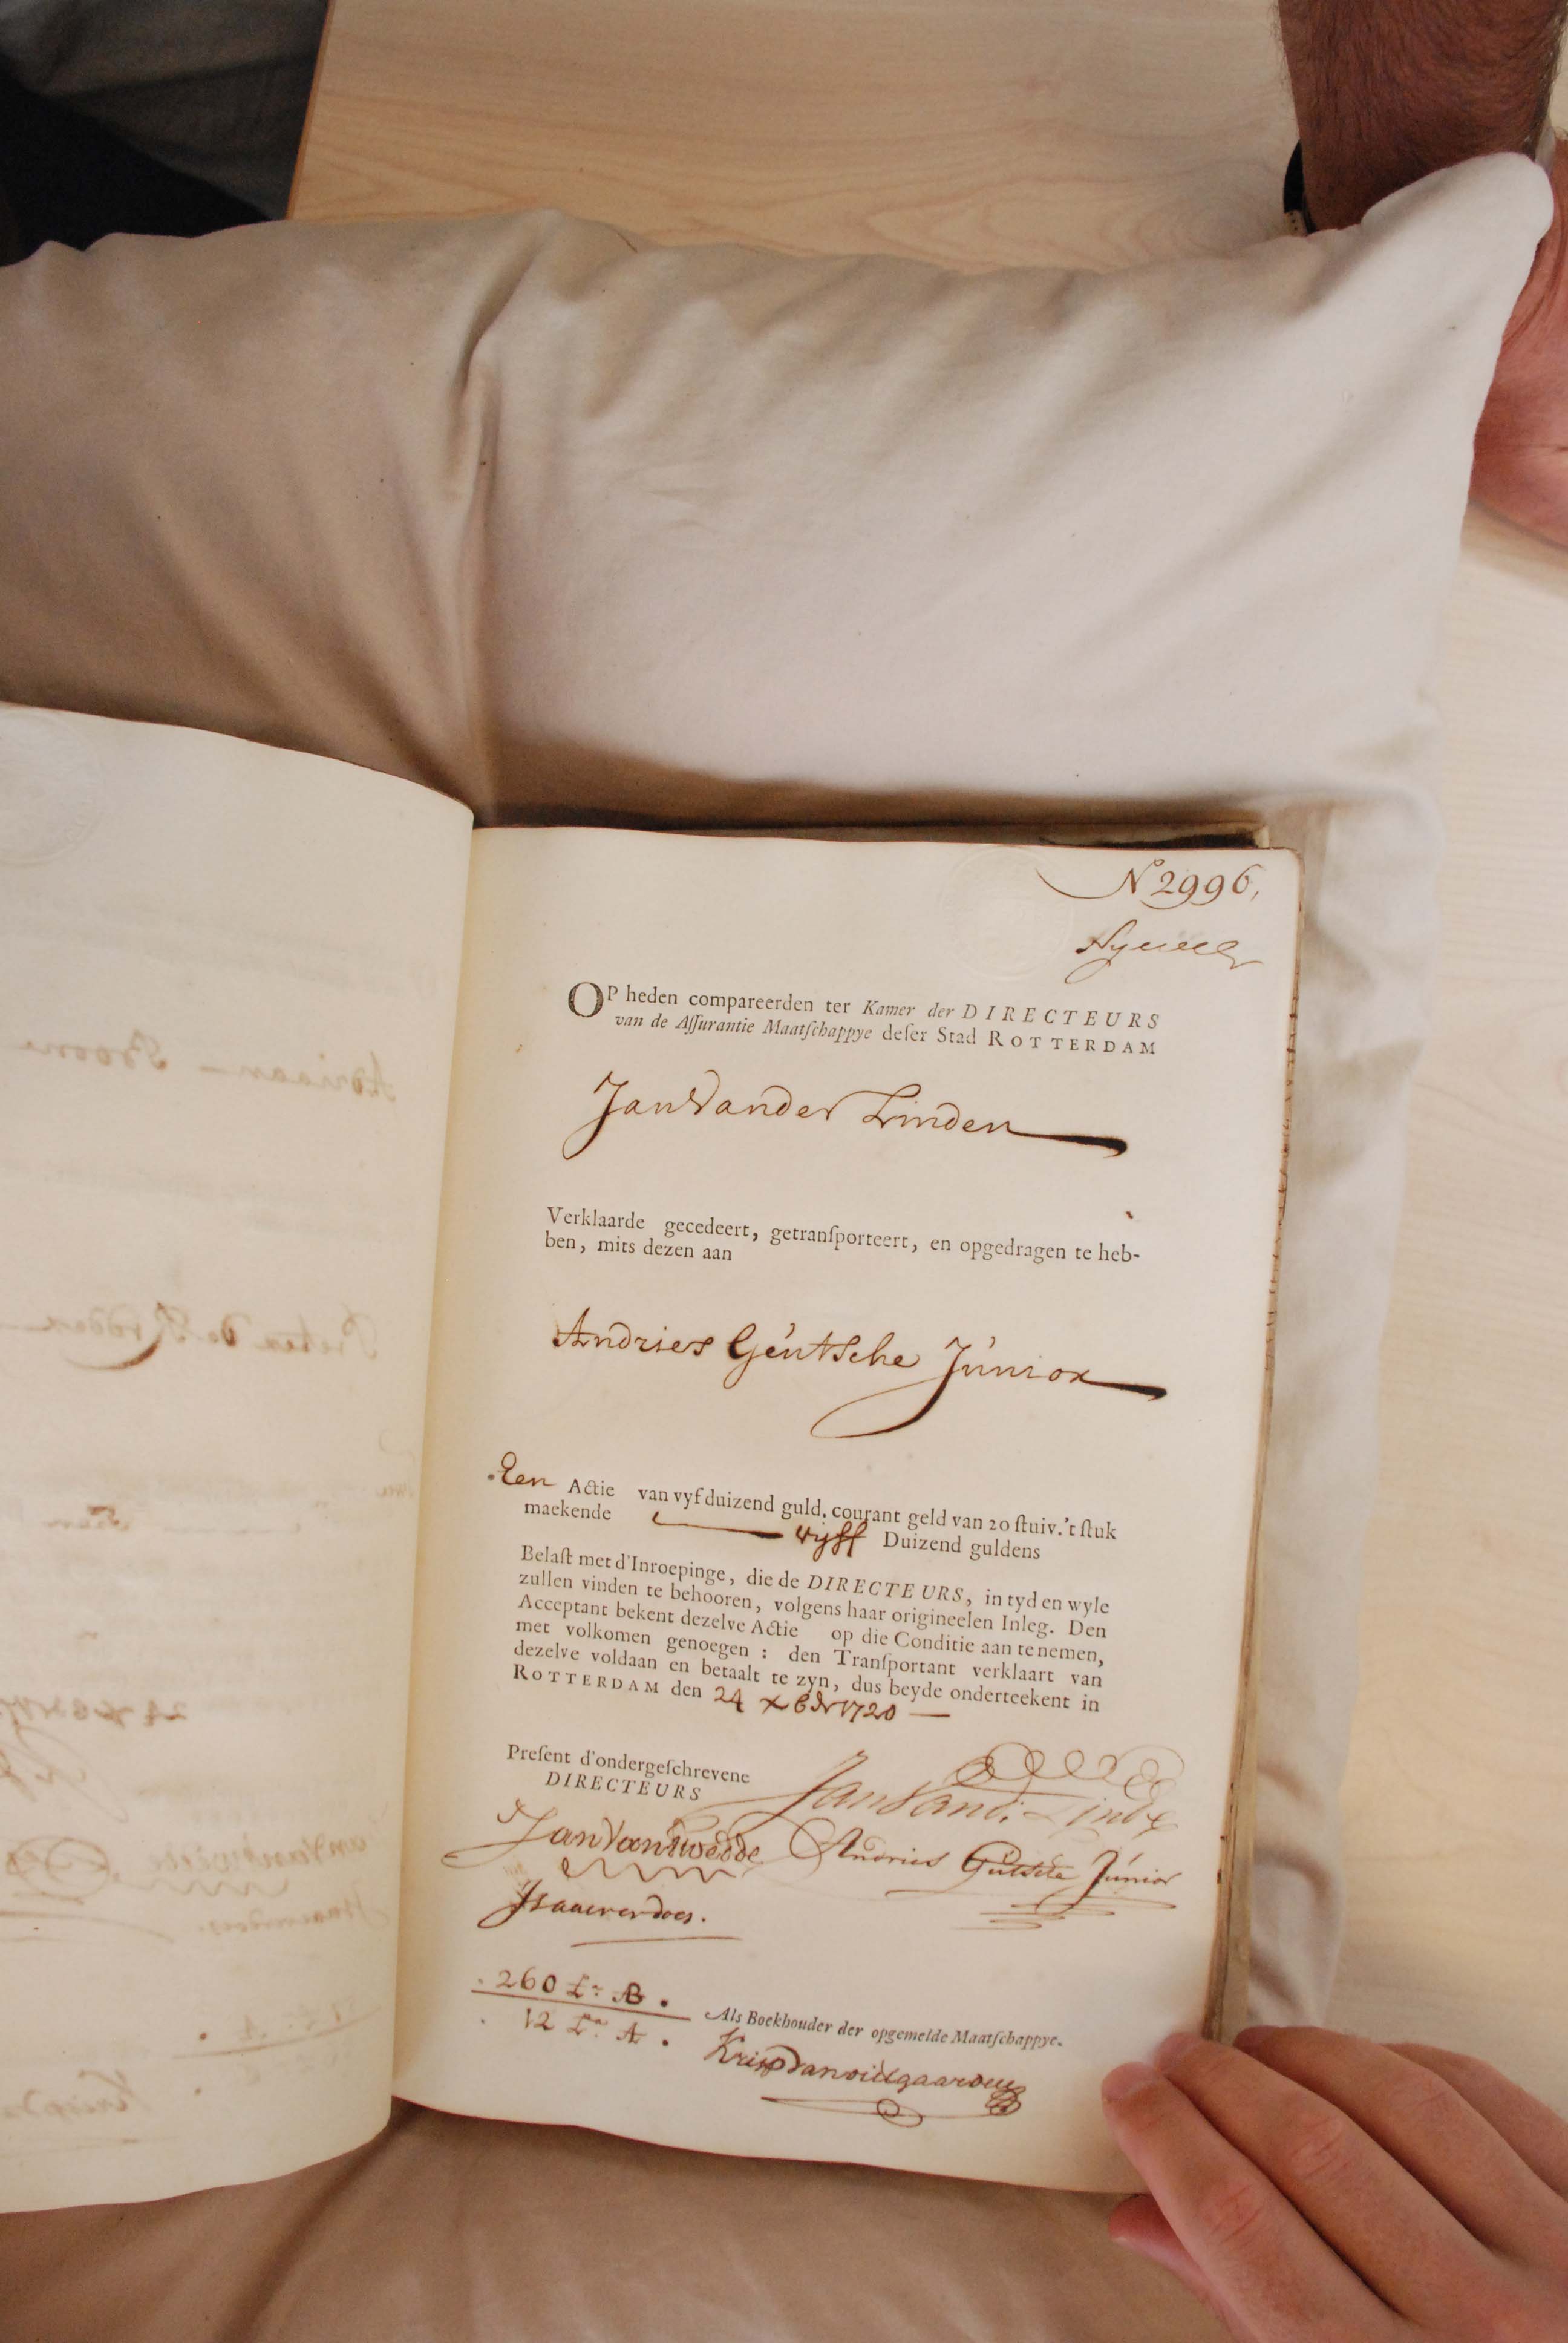 No 2996.
OP heden compareerden ter Kamer der DIRECTEURS
van de Aſſurantie Maatſchappye deſer Stad ROTTERDAM
Jan Vander Linden
Verklaarde gecedeert, getranſporteert, en opgedragen te heb-
ben, mits dezen aan
Andries Geutsche Junior
Een Actie van vyf duizend guld. courant geld van 20 ſtuiv. 't ſtuk
maekende vyff Duizend guldens
Belaſt met d'Inroepinge, die de DIRECTEURS, in tyd en wyle
zullen vinden te behooren, volgens haar origineelen Inleg. Den
Acceptant bekent dezelve Actie op die Conditie aan te nemen,
met volkomen genoegen : den Tranſportant verklaart van
dezelve voldaan en betaalt te zyn, dus beyde onderteekent in
ROTTERDAM den 24 Xber 1720
Preſent d'ondergeſchrevene
DIRECTEURS
Jan Vande Linde
Jan Vantwedde
Andries Geutsche Junior
Isaacverdoes.
260 La B.
12 La A.
Als Boekhouder der opgemelde Maatſchappye.